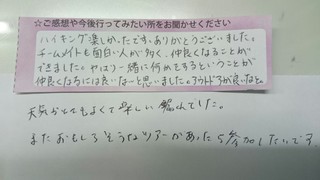 ☆ご感想や今後行ってみたい所をお聞かせください
ハイキング楽しかったです、ありがとうございました。
チームメイトも面白い人が多く、仲良くなることが
できました。やはり一緒に何かをするということが
仲良くなるには良いなーと思いました。アウトドアが良いなと。
天気がとてもよくて楽しい でした。
またおもしろそうなツアーがあったら参加したいです